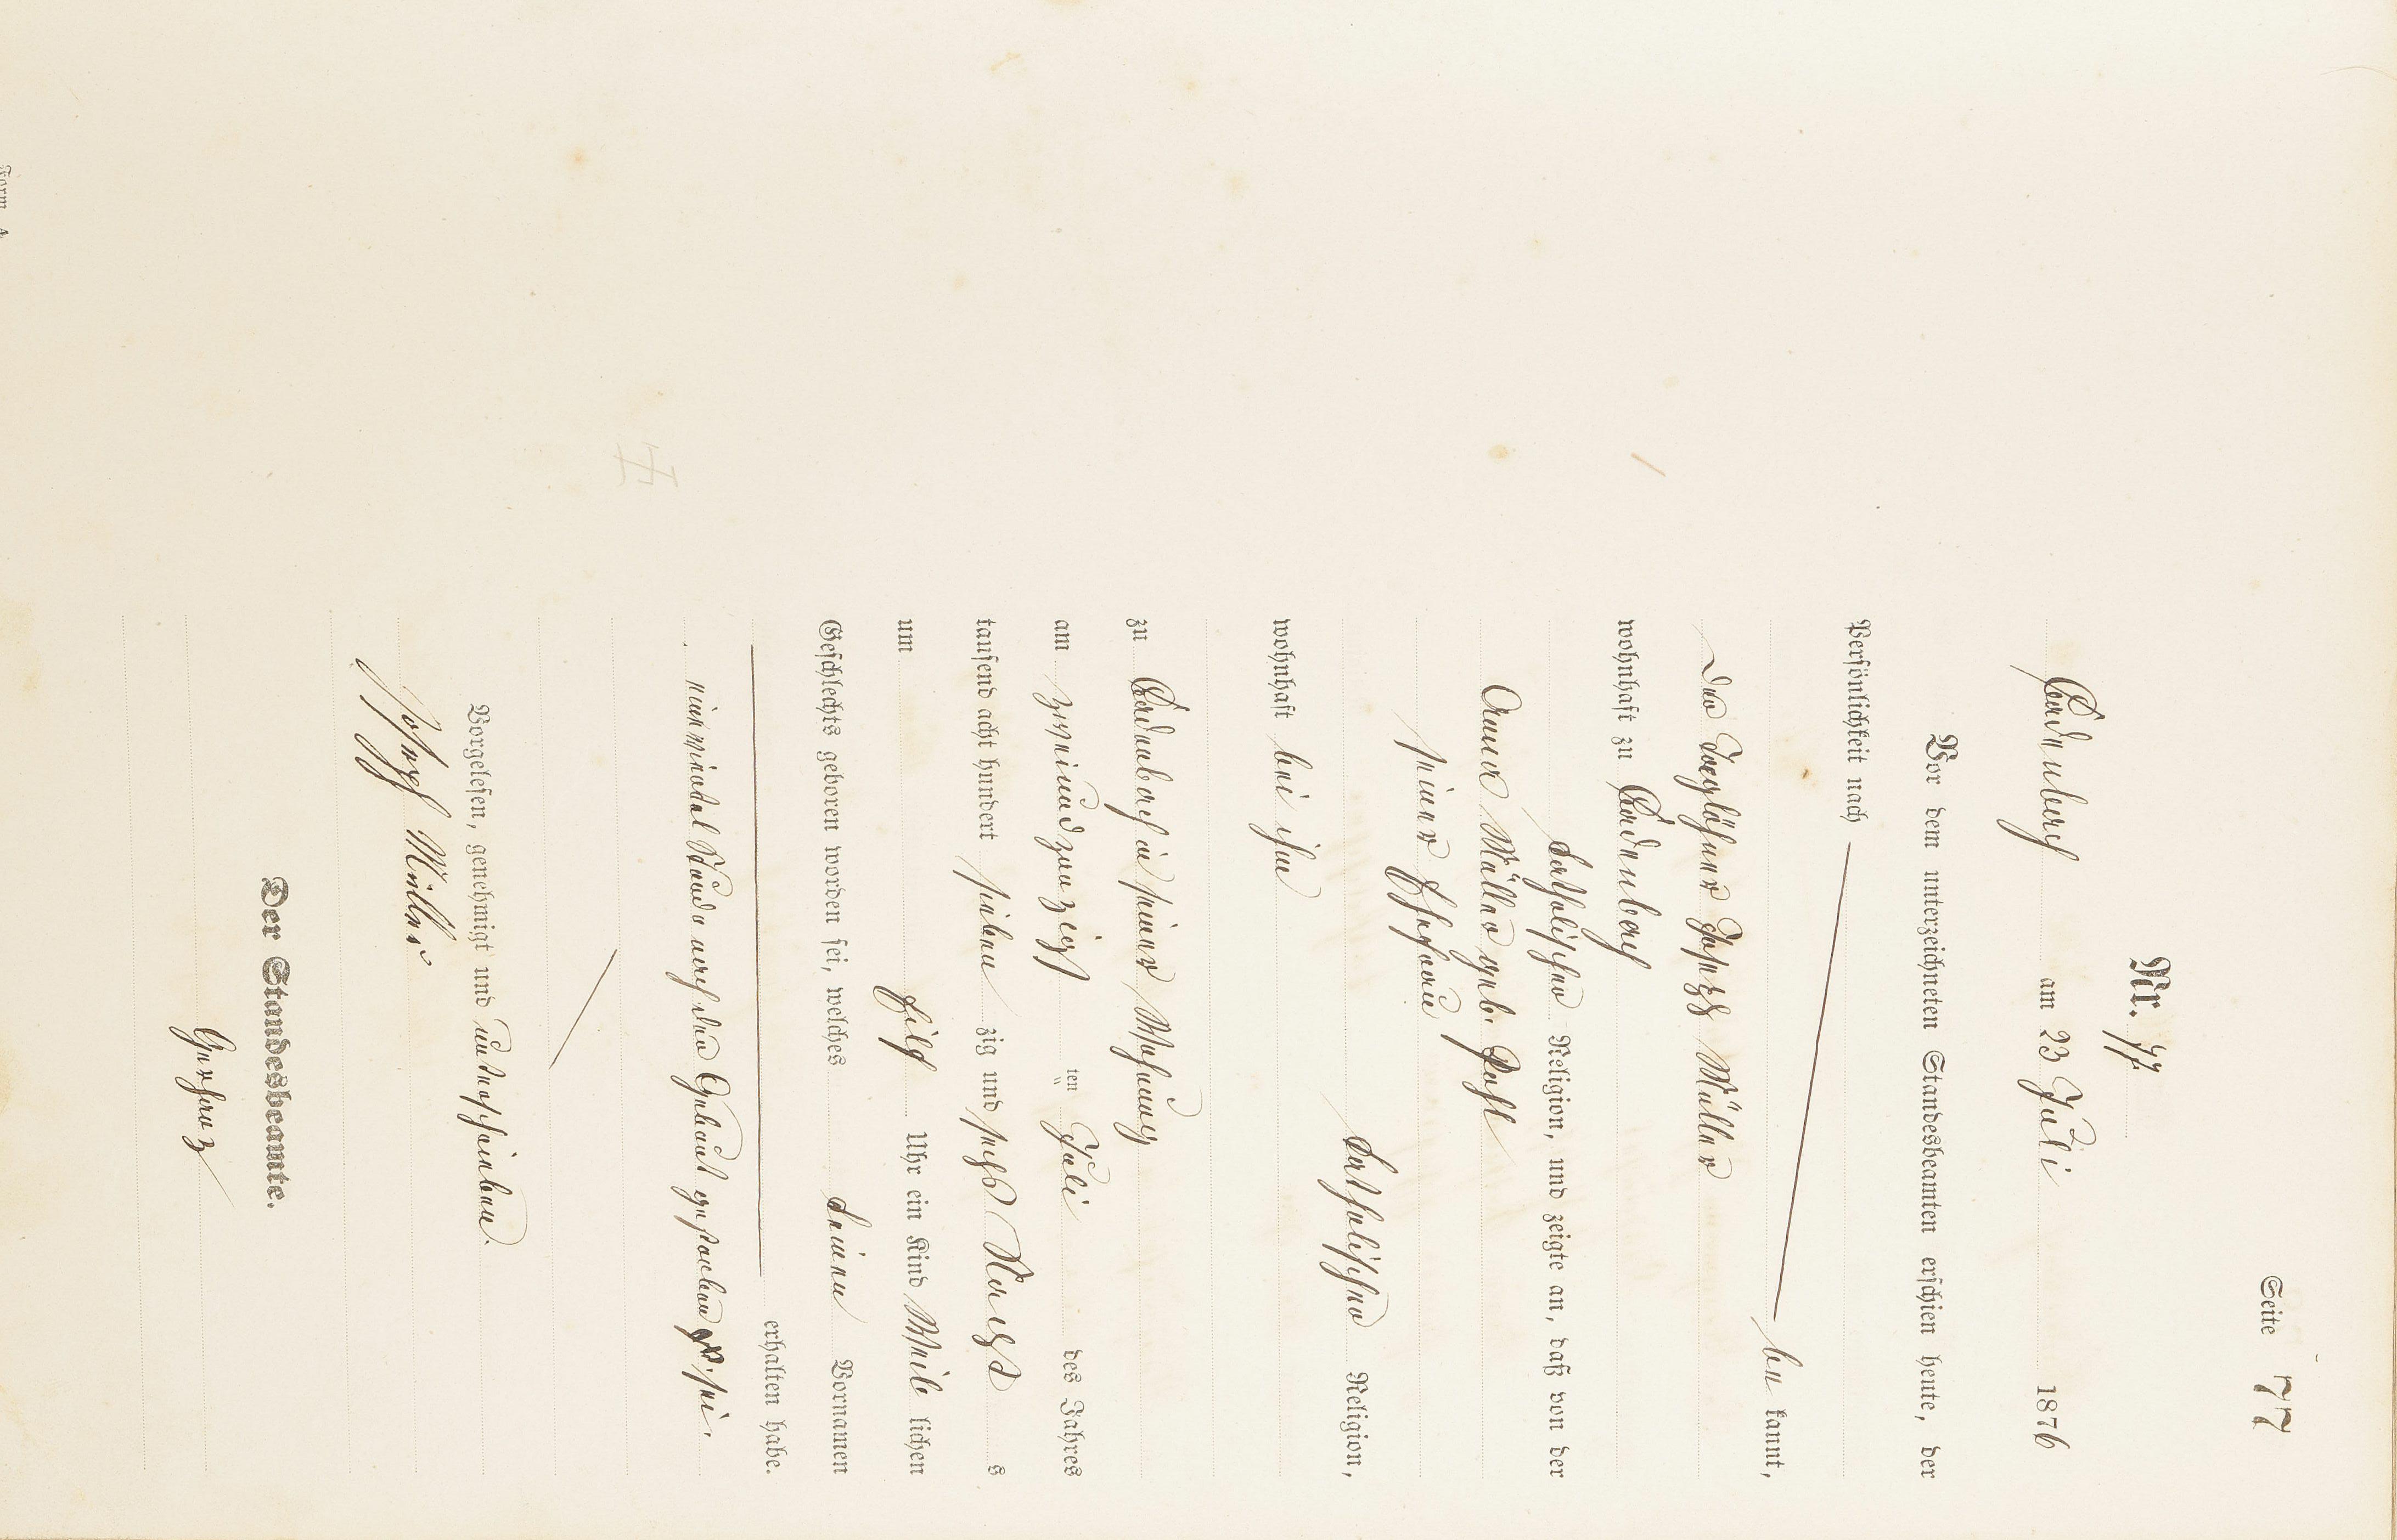 Seite 77
Nr. 77.
Badenberg am 23 Juli 1876
Vor dem unterzeichneten Standesbeamten erschien heute, der
Persönlichkeit nach
be kannt,
Der Taglöhner Joseph Müller
wohnhaft zu Badenberg
katholischer Religion, und zeigte an, daß von der
Anna Müller geb. Pohl
seiner Ehefrau
katholischer Religion,
wohnhaft bei ihm
zu Badenberg in seiner Wohnung
am zweiundzwanzigsten Juli des Jahres
tausend acht hundert sieben zig und sechs Nachts
um Zwölf Uhr ein Kind Weib lichen
Geschlechts geboren worden sei, welches keinen Vornamen
erhalten habe.
eine viertel Stunde nach der Geburt gestorben sei.
Vorgelesen, genehmigt und unterschrieben.
Joseph Müller
Der Standesbeamte.